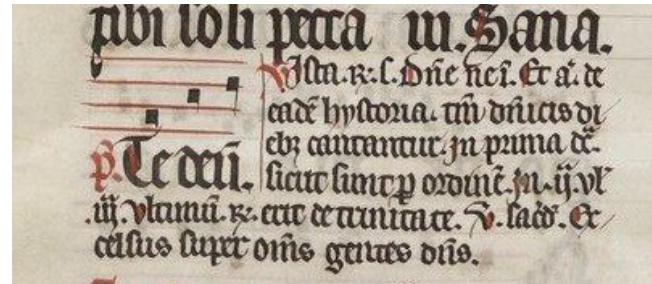 tibi soli pecca vi. Sana.
Ista. R. s. Dñe ne ĩ. Et a. de
eadẽ hystoria. tm̃ dñicis di
ebꝫ cantantur. In prima dẽ.
P. Te deũ. sicut sunt ꝑ ordinẽ. In. ij. vl̛
.iij. vltimũ. R. erit de trinitate. V̛. sacd̛. Ex
celsus super om̃s gentes dñs.